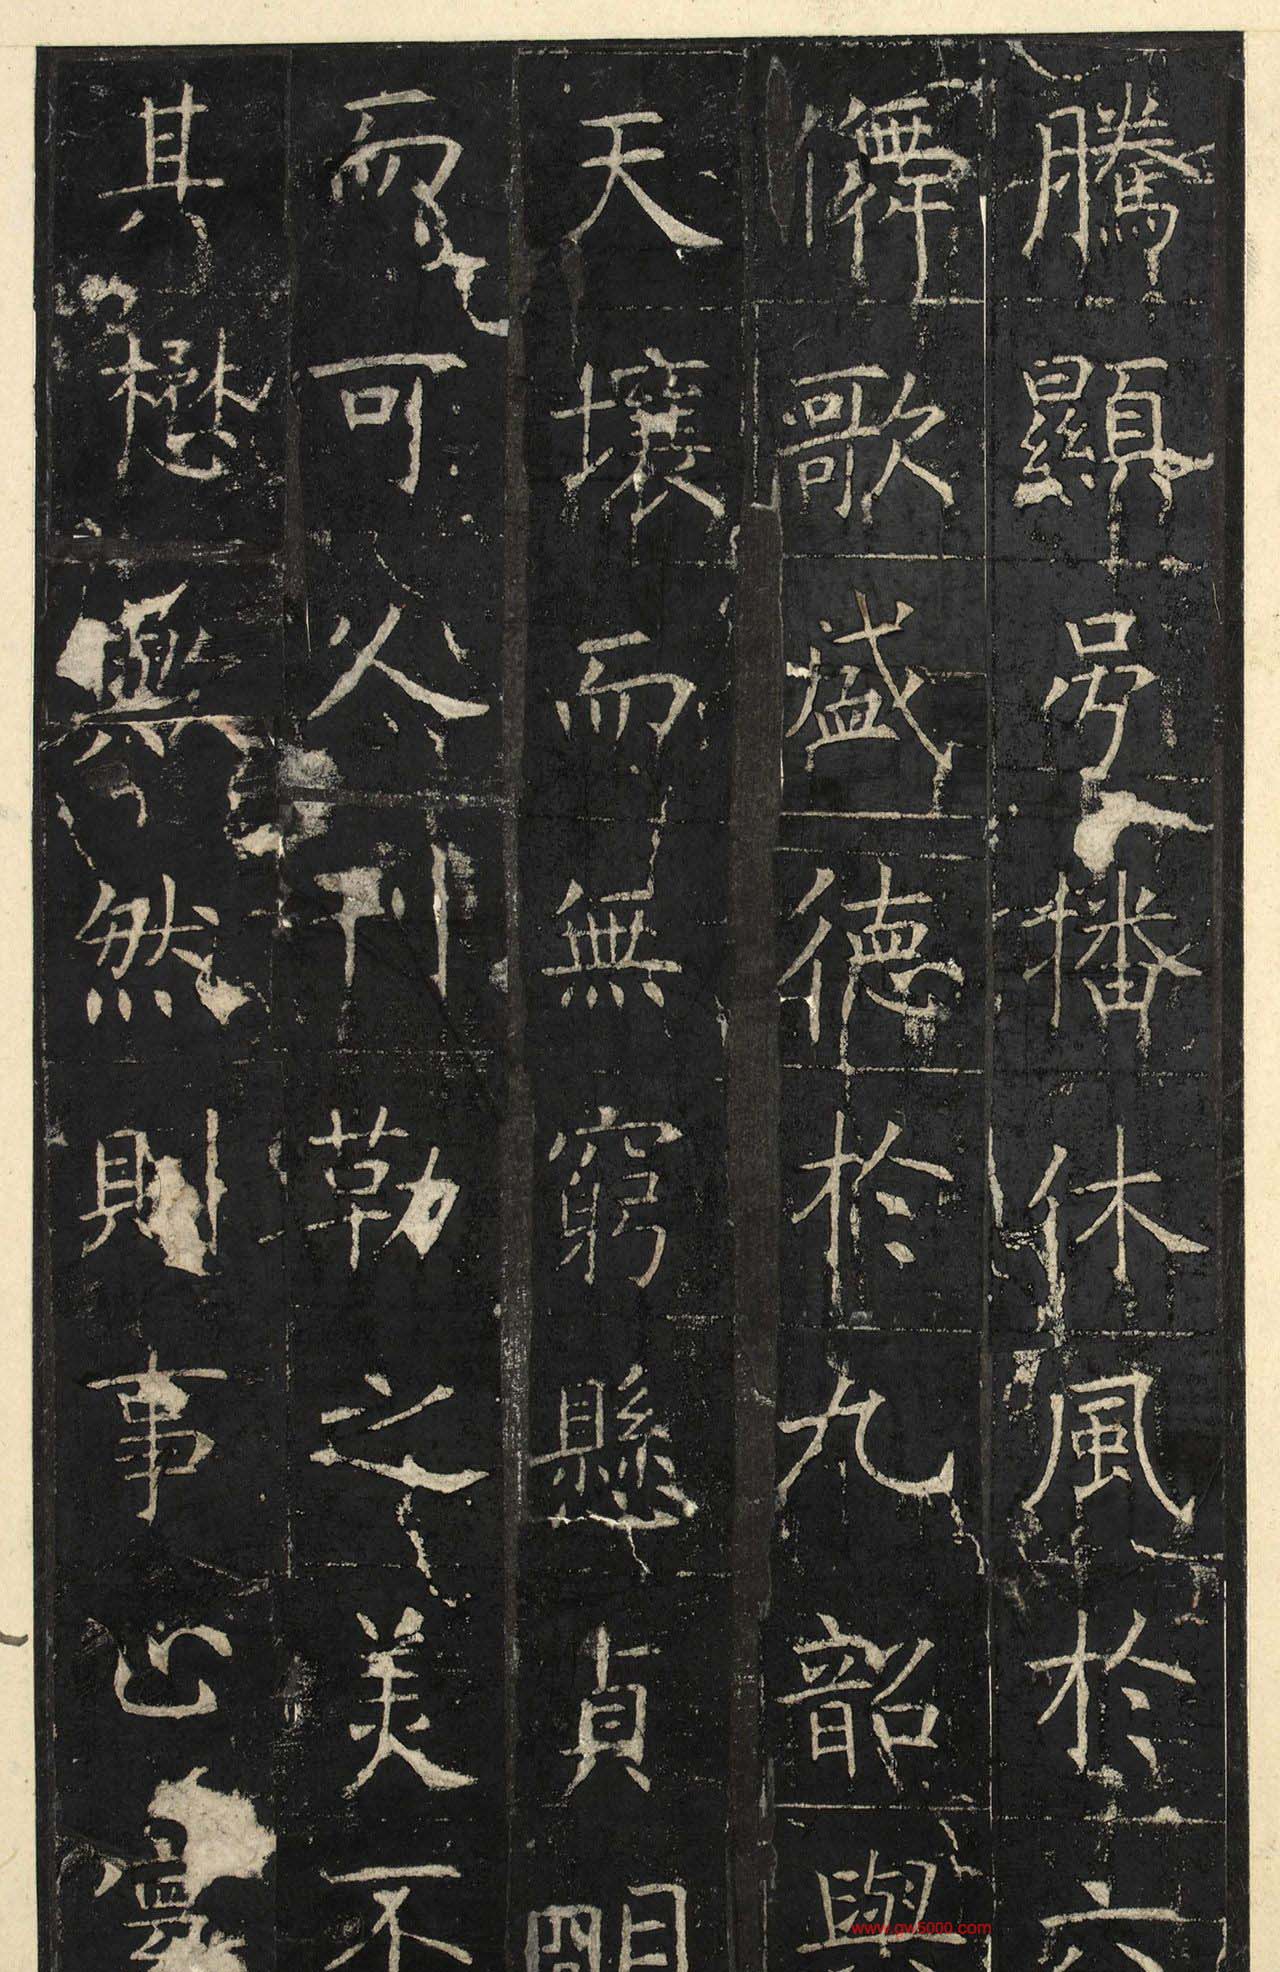 騰顯号播休風於六
儛歌盛德於九韶與
天壤而無窮懸貞明
而可久刊勒之美不
其懋與然則事止寰
www.gw5000.com